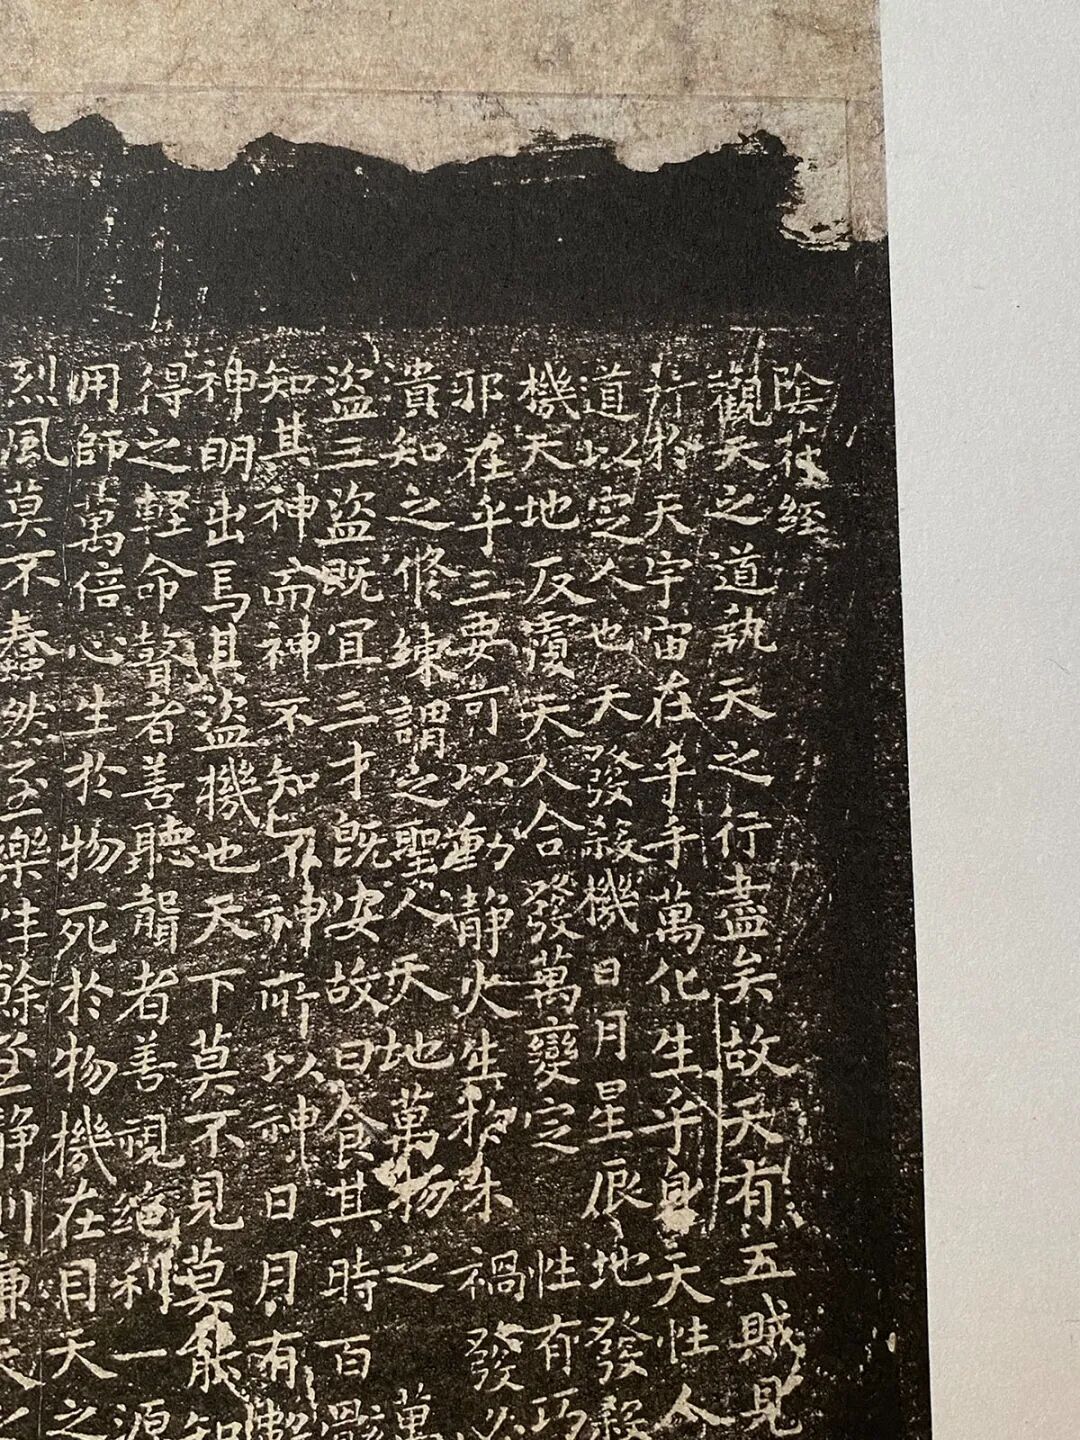 陰符經
觀天之道執天之行盡矣故天有五賊見
行於天宇宙在乎手萬化生乎身天性人
道以定人也天發殺機日月星辰地發殺
機天地反覆天人合發萬變定 性有巧
邪在乎三要可以動静火生於木 禍發必
潰知之修練謂之聖人天地萬物之 萬
盜三盜既宜三才既安故曰食其時百骸
知其神而神不知不神所以神日月有數
神明出焉其盜機也天下莫不見莫能知
得之軽命瞽者善聽聾者善視絕利一源
用師萬倍心生於物死於物機在目天之
烈風莫不蠢然至樂性餘至静則廉天之